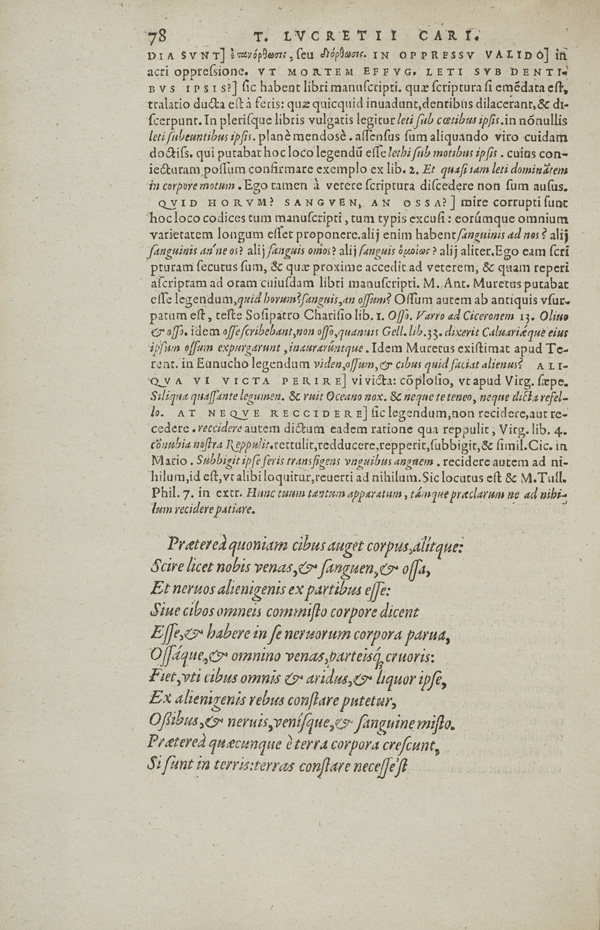 78 T. LVCRETII CARI.
DIA SVNT] ἐπανόρθωσις, seu διόρθωσις. IN OPPRESSV VALIDO] in
acri oppressione. VT MORTEM EFFVG. LETI SVB DENTI-
BVS IPSIS?] sic habent libri manuscripti. quæ scriptura si emẽdata est,
tralatio ducta est à feris: quæ quicquid inuadunt, dentibus dilacerant, & di-
scerpunt. In plerisque libris vulgatis legitur leti sub cœtibus ipsis. in nõnullis
leti subeuntibus ipsis. planè mendosè. assensus sum aliquando viro cuidam
doctiss. qui putabat hoc loco legendũ esse lethi sub motibus ipsis. cuius con-
iecturam possum confirmare exemplo ex lib. 2. Et quasi iam leti dominãtem
in corpore motum. Ego tamen à vetere scriptura discedere non sum ausus.
QVID HORVM? SANGVEN, AN OSSA?] mire corrupti sunt
hoc loco codices tum manuscripti, tum typis excusi: eorúmque omnium
varietatem longum esset proponere. alij enim habent sanguinis ad nos? alij
sanguinis an'ne os? alij sanguis onios? alij sanguis ὁμοίως? alij aliter. Ego eam scri
pturam secutus sum, & quæ proxime accedit ad veterem, & quam reperi
ascriptam ad oram cuiusdam libri manuscripti. M. Ant. Muretus putabat
esse legendum, quid horum? sanguis, an ossum? Ossum autem ab antiquis vsur-
patum est, teste Sosipatro Charisio lib. 1. Osso. Varro ad Ciceronem 13. Oliuo
& osso. idem osse scribebant, non osso, quanuit Gell. lib. 33. dixerit Caluariæque eius
ipsum ossum expurgarunt, inaurarúntque. Idem Muretus existimat apud Te-
rent. in Eunucho legendum viden, ossum, & cibus quid faciat alienus? ALI-
QVA VI VICTA PERIRE] vi victa: cõplosio, vt apud Virg. sæpe.
Siliqua quassante legumen. & ruit Oceano nox. & neque te teneo, neque dicta refel-
lo. AT NEQVE RECCIDERE] sic legendum, non recidere, aut re-
cedere. reccidere autem dictum eadem ratione qua reppulit, Virg. lib. 4.
cõnubia nostra Reppulit. rettulit, redducere, repperit, subbigit, & simil. Cic. in
Mario. Subbigit ipse feris transfigens vnguibus anguem. recidere autem ad ni-
hilum, id est, vt alibi loquitur, reuerti ad nihilum. Sic locutus est & M. Tull.
Phil. 7. in extr. Hunc tuum tantum apparatum, támque præclarum ne ad nihi-
lum recidere patiare.
Prætereà quoniam cibus auget corpus, alítque:
Scire licet nobis venas, & sanguen, & ossa,
Et neruos alienigenis ex partibus esse:
Siue cibos omneis commisto corpore dicent
Esse, & habere in se neruorum corpora parua,
Ossáque, & omnino venas, parteisq́; cruoris:
Fiet, vti cibus omnis & aridus, & liquor ipse,
Ex alienigenis rebus constare putetur,
Ossibus, & neruis, venísque, & sanguine misto.
Prætereà quæcunque è terra corpora crescunt,
Si sunt in terris: terras constare necesse'st